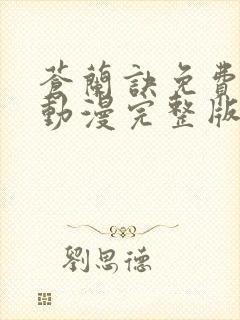 蒼蘭訣免費
動漫完整版
劉思德